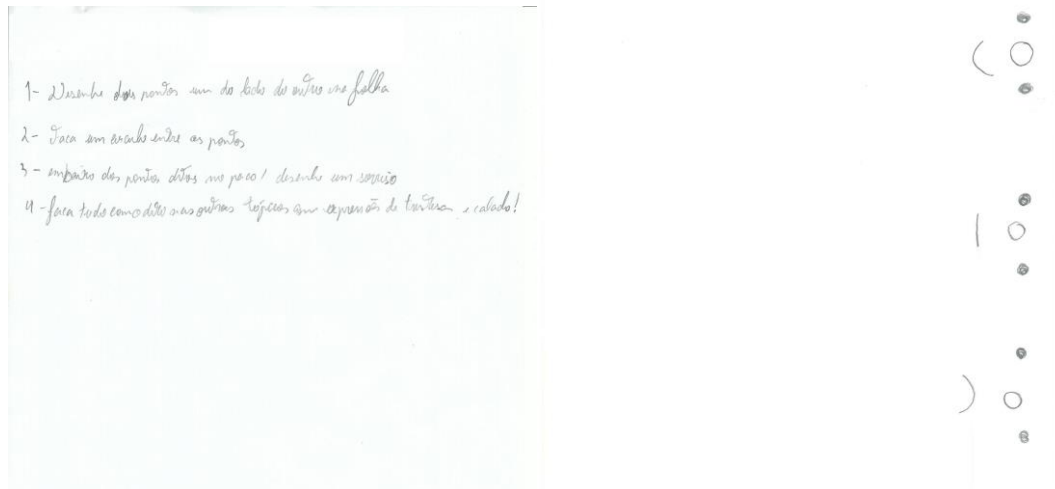 1- Desenhe dois pontos um do lado do outro na folha
2- Faca um entre os pontos
3- embaixo dos pontos ditos no desenhe um sorriso
4- faca tudo como dito nas outras tópicos com expressão de tristesa e calado!